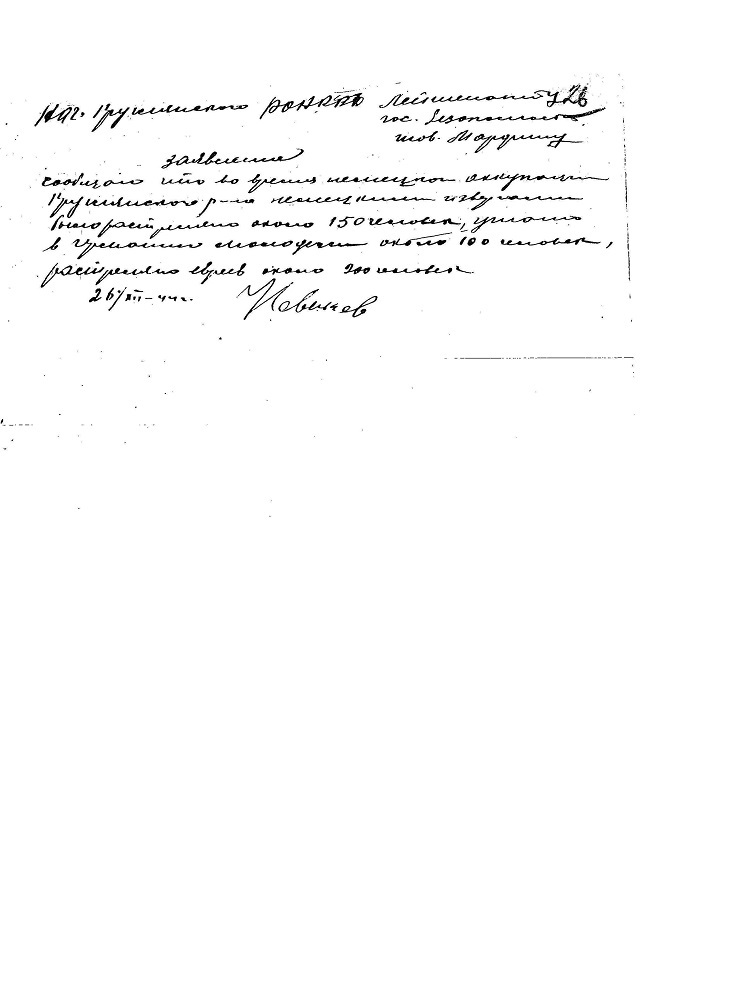 Нач. Круглянского РОНКГБ Лейтенанту 26
гос. Безопасност.
тов. Мардвину
заявление
сообщаю что во время немецкой аккупации
Круглянского р-на немецкими извергами
было растреляно около 150 человек, угнано
в Германию молодежи около 100 человек,
растреляно евреев около 200 человек
26/XII-44г.